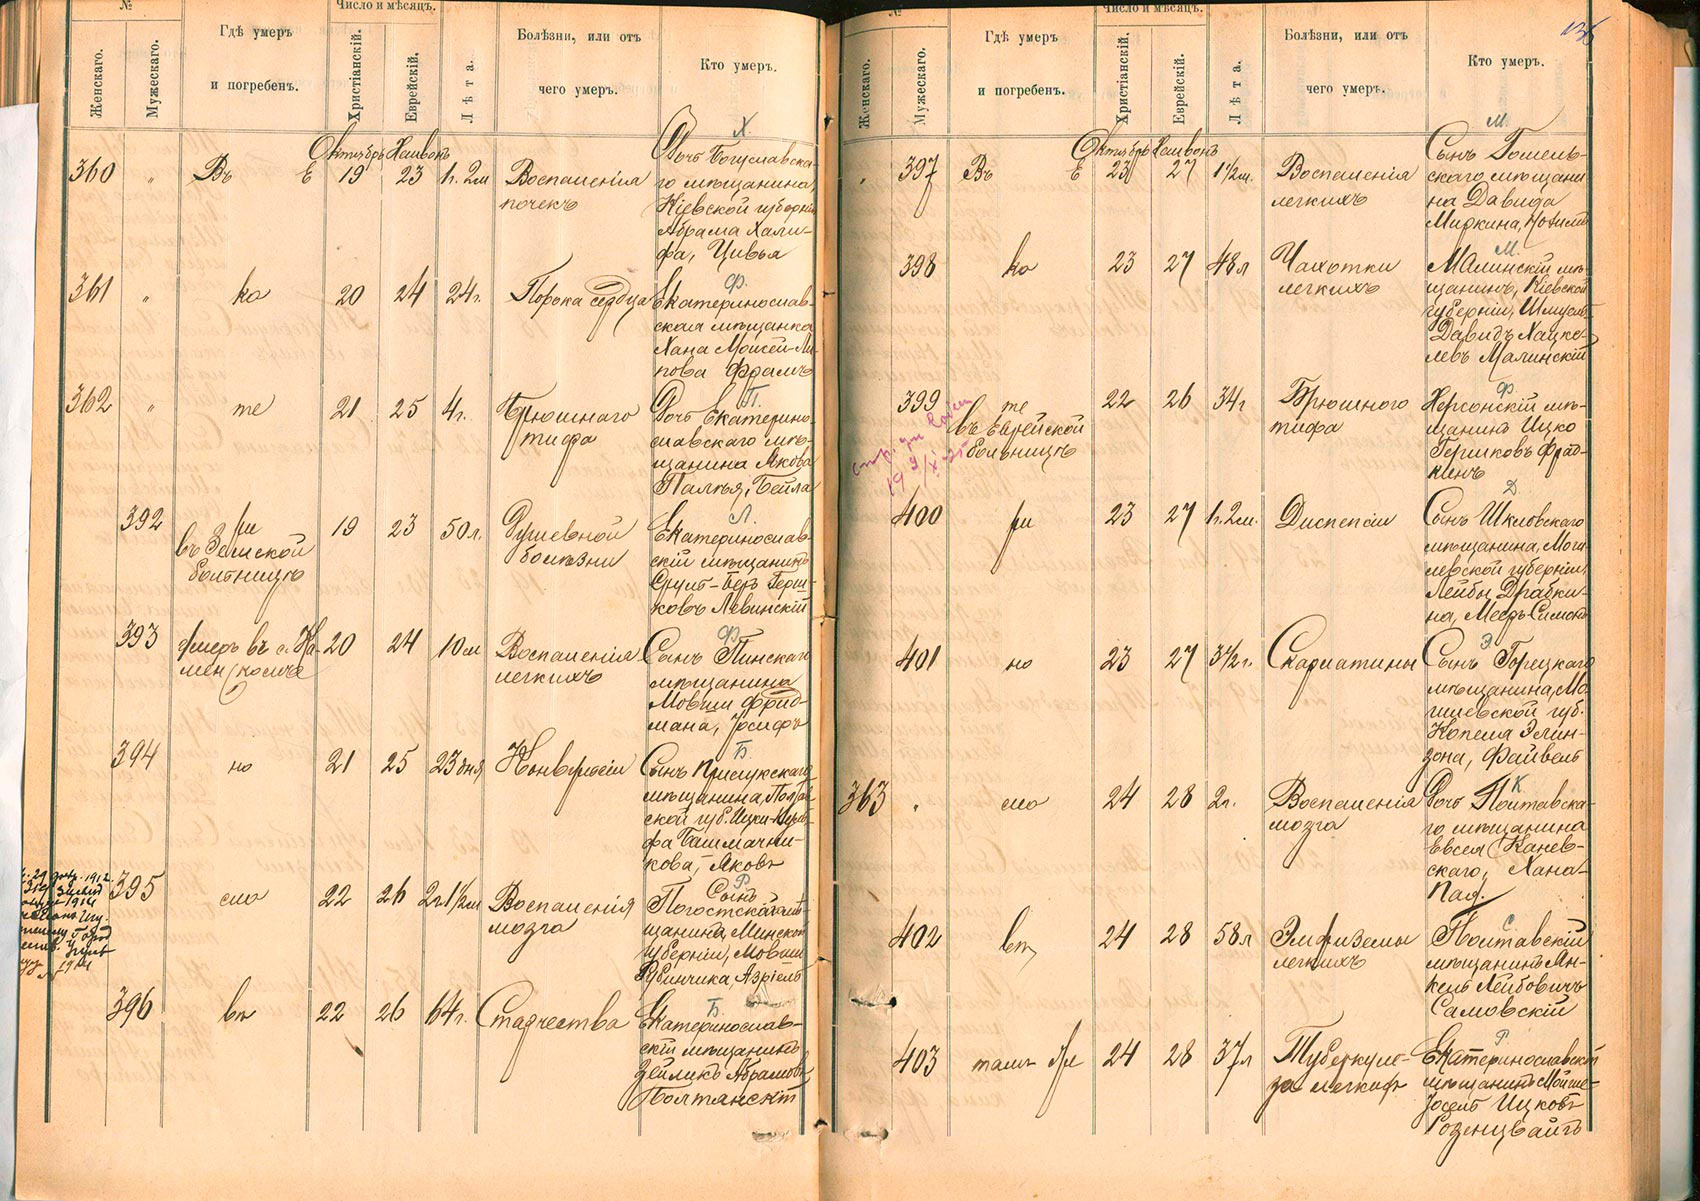 №
Женскаго.
Мужескаго.
Гдѣ умеръ
и погребенъ.
Число и мѣсяцъ.
Христіанскій.
Еврейскій.
Лѣта.
Болѣзни, или отъ
чего умеръ.
Кто умеръ.
Октябрь Хешвонъ
360 " Въ Е 19 23 1г. 2м
Воспаленія
почекъ
Х.
Дочь Богуславска-
го мѣщанина,
Кіевской губерніи
Абрама Хали-
фа, Цивья
361 " ка 20 24 24г.
Порока сердца
Ф.
Екатеринослав-
ская мѣщанка
Хана Моисей-Ли-
пова Фрамъ
362 " те 21 25 4г.
Брюшнаго
тифа
П.
Дочь Екатерино-
славскаго мѣ-
щанина Якова
Палья, Бейла
392 ри
въ Земской
больницѣ
19 23 50л.
Душевной
болѣзни
Л.
Екатеринослав-
скій мѣщанинъ
Сруль-Беръ Герш-
ковъ Левинскій
393 умеръ въ с. Ка-
менское
20 24 10м
Воспаленія
легкихъ
Ф.
Сынъ Пинскаго
мѣщанина
Мовши Фрид-
мана, Іосифъ
394 но 21 25 23 дня
Конвульсіи
Б.
Сынъ Прилукскаго
мѣщанина, Полтав-
ской губ. Ицки-
фа Башмачни-
кова, Яковъ
395 сла 22 26 2г 1½м
Воспаленія
мозга
Р.
Сынъ
Погостскаго мѣ-
щанина, Минской
губерніи, Мовши
Рубинчика Азріель
396 въ 22 26 64г.
Старчества
Б.
Екатеринослав-
скій мѣщанинъ
Зейликъ Абрамовъ
Болтянскій
№
Женскаго.
Мужескаго.
Гдѣ умеръ
и погребенъ.
Число и мѣсяцъ.
Христіанскій.
Еврейскій.
Лѣта.
Болѣзни, или отъ
чего умеръ.
Кто умеръ.
Октябрь Хешвонъ
397 Въ Е 23 27 1½м.
Воспаленія
легкихъ
М.
Сынъ Гомель-
скаго мѣщани-
на Давида
Миркина,
398 ка 23 27 48л
Чахотки
легкихъ
М.
Малинскій мѣ-
щанинъ, Кіевской
губерніи, Шмуель-
Давидъ Хацке-
левъ Малинскій
399 те
въ Еврейской
больницѣ
22 26 34г
Брюшного
тифа
Ф.
Херсонскій мѣ-
щанинъ Ицко
Гершковъ Фрад-
кинъ
400 ри 23 27 1г. 2м.
Диспепсіи
Д
Сынъ Шкловскаго
мѣщанина, Моги-
левской губерніи,
Лейбы Драбки-
на, Мееръ-Симонъ
401 но 23 27 3½г.
Скарлатины
Э
Сынъ Горецкаго
мѣщанина, Мо-
гилевской губ.
Копеля Элин-
зона, Файвель
363 " сло 24 28 2г.
Воспаленія
мозга
К
Дочь Полтавска-
го мѣщанина
Евсея Канев-
скаго, Хана-
Пая.
402 въ 24 28 58л
Эмфиземы
легкихъ
С
Полтавскій
мѣщанинъ Ян-
кель Лейбовичъ
Самовскій
403 тамъ же 24 28 37л
Туберкуле-
за легкихъ
Р
Екатеринославскій
мѣщанинъ Мойше-
Іосель Ицковъ
Розенцвайгъ